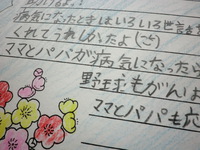 病気になったときはいろいろ世話を
くれてうれしかったよ(ごう)
ママとパパが病気になったら
野球もがんば
ママとパパも応